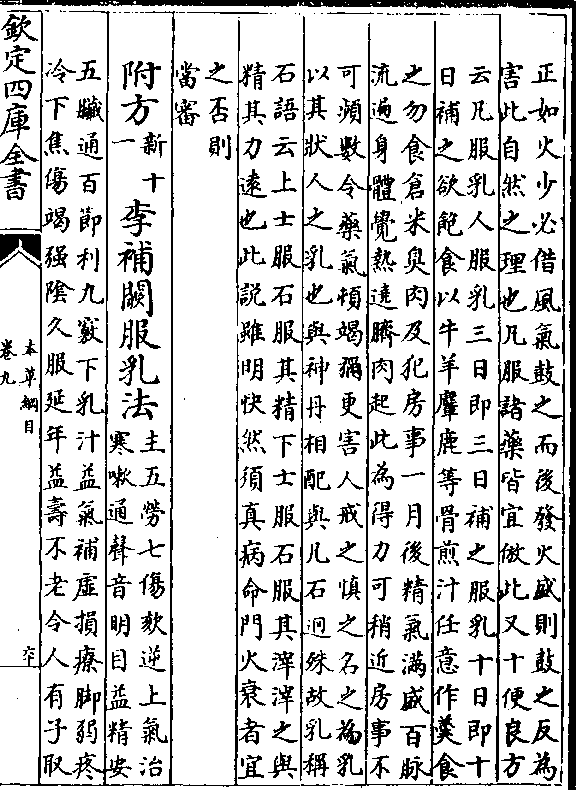 正如火少必借風氣鼓之而後發火盛則鼓之反為
害此自然之理也凡服諸藥皆宜倣此又十便良方
云凡服乳人服乳三日即三日補之服乳十日即十
日補之欲飽食以牛羊麞鹿等骨煎汁任意作羮食
之勿食倉米臭肉及犯房事一月後精氣滿盛百脉
流遍身體覺熱遶臍肉起此為得力可稍近房事不
可頻數令藥氣頓竭彌更害人戒之慎之名之為乳
以其狀人之乳也與神丹相配與凡石迥殊故乳稱
石語云上士服石服其精下士服石服其滓滓之與
精其力遠也此説雖明快然須真病命門火衰者宜
之否則
當審
附方新十一李補闕服乳法主五勞七傷欬逆上氣治
寒嗽通聲音明目益精安
五臟通百節利九竅下乳汁益氣補虚損療脚弱疼
冷下焦傷竭强隂久服延年益壽不老令人有子取
欽定四庫全書
本草綱目
卷九
六十